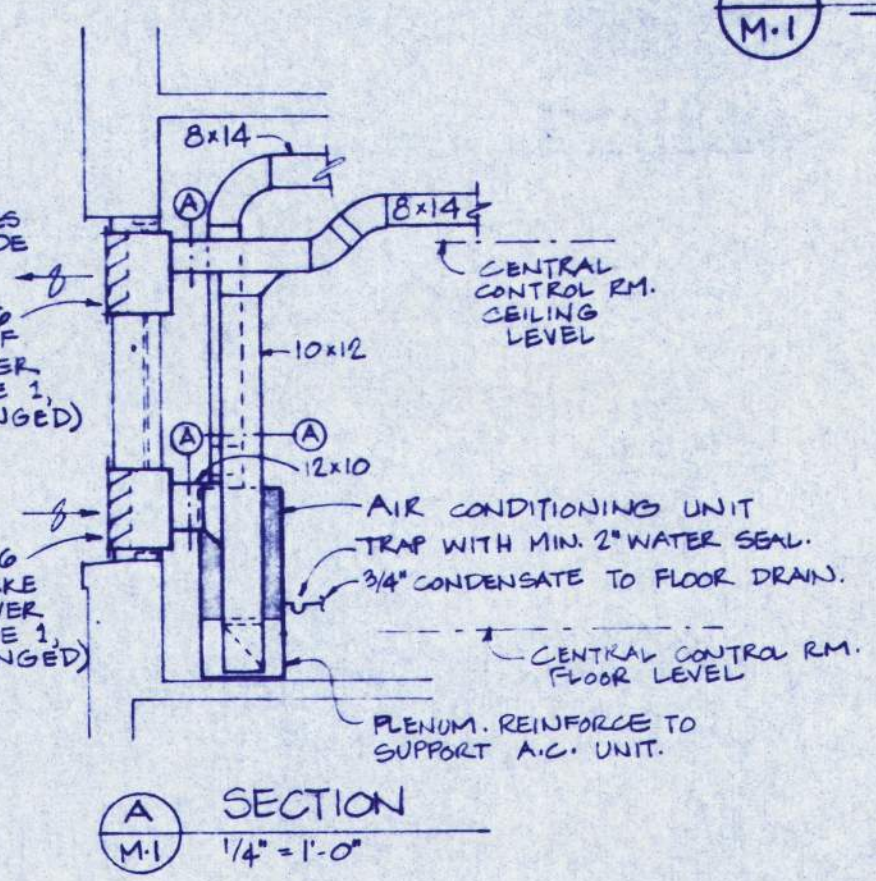 M·1
8x14
A
8x14
CENTRAL
CONTROL RM.
CEILING
LEVEL
10x12
NGED)
A
A
12x10
AIR CONDITIONING UNIT
TRAP WITH MIN. 2" WATER SEAL.
3/4" CONDENSATE TO FLOOR DRAIN.
NGED)
CENTRAL CONTROL RM.
FLOOR LEVEL
PLENUM. REINFORCE TO
SUPPORT A.C. UNIT.
A
M·1
SECTION
1/4" = 1'-0"